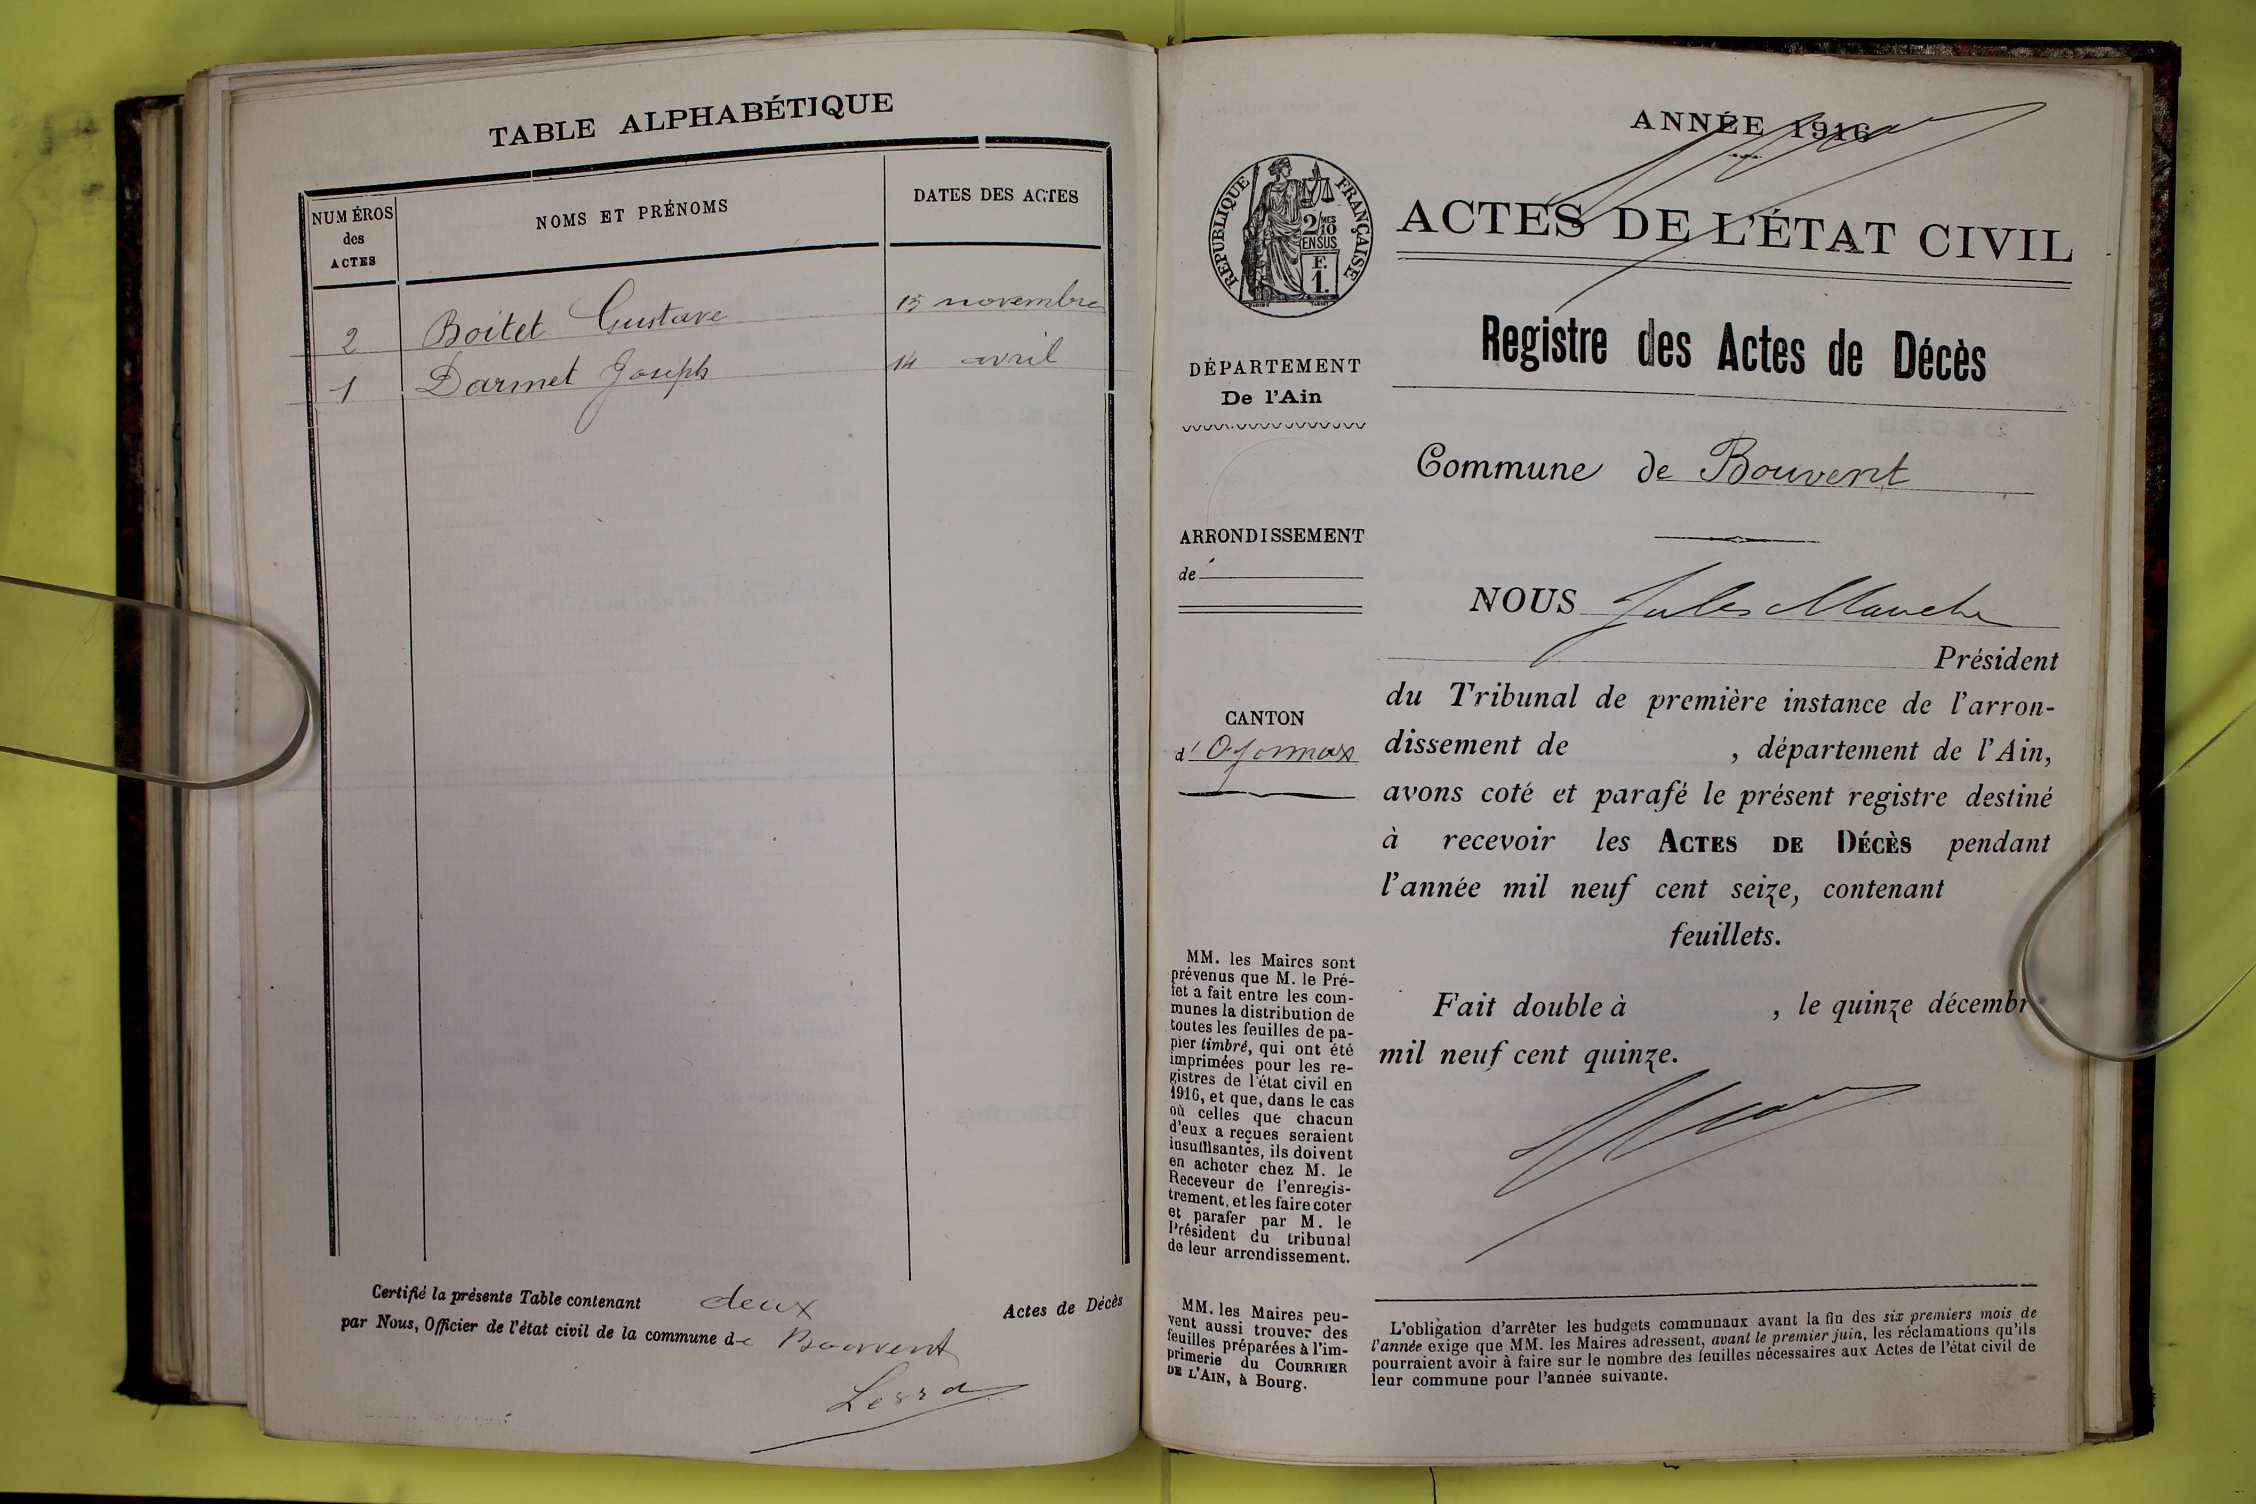 TABLE ALPHABÉTIQUE
NUMÉROS
des
ACTES
NOMS ET PRÉNOMS
DATES DES ACTES
2 Boitet Gustave 15 novembre
1 Darmet Joseph 14 avril
Certifié la présente Table contenant deux Actes de Décès
par Nous, Officier de l'état civil de la commune de Bouvent
ANNÉE 1916
RÉPUBLIQUE FRANÇAISE
2/10 MES
EN SUS
F.
1.
ACTES DE L'ÉTAT CIVIL
Registre des Actes de Décès
DÉPARTEMENT
De l'Ain
Commune de Bouvent
ARRONDISSEMENT
de
CANTON
d' Oyonnax
NOUS Jules Mauche
Président
du Tribunal de première instance de l'arron-
dissement de , département de l'Ain,
avons coté et parafé le présent registre destiné
à recevoir les ACTES DE DÉCÈS pendant
l'année mil neuf cent seize, contenant
feuillets.
Fait double à , le quinze décembr
mil neuf cent quinze.
MM. les Maires sont
prévenus que M. le Pré-
fet a fait entre les com-
munes la distribution de
toutes les feuilles de pa-
pier timbré, qui ont été
imprimées pour les re-
gistres de l'état civil en
1916, et que, dans le cas
où celles que chacun
d'eux a reçues seraient
insuffisantes, ils doivent
en acheter chez M. le
Receveur de l'enregis-
trement, et les faire coter
et parafer par M. le
Président du tribunal
de leur arrondissement.
MM. les Maires peu-
vent aussi trouver des
feuilles préparées à l'im-
primerie du COURRIER
DE L'AIN, à Bourg.
L'obligation d'arrêter les budgets communaux avant la fin des six premiers mois de
l'année exige que MM. les Maires adressent, avant le premier juin, les réclamations qu'ils
pourraient avoir à faire sur le nombre des feuilles nécessaires aux Actes de l'état civil de
leur commune pour l'année suivante.